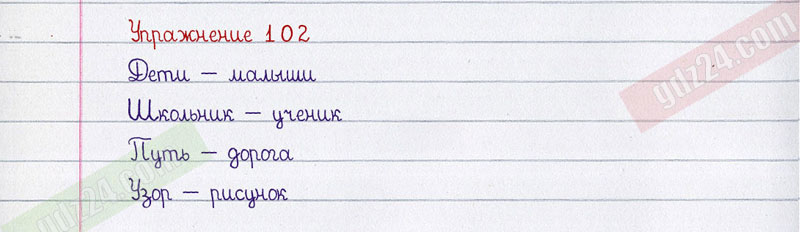 Упражнение 102
Дети – малыши
Школьник – ученик
Путь – дорога
Узор – рисунок
gdz24.com
gdz24.com